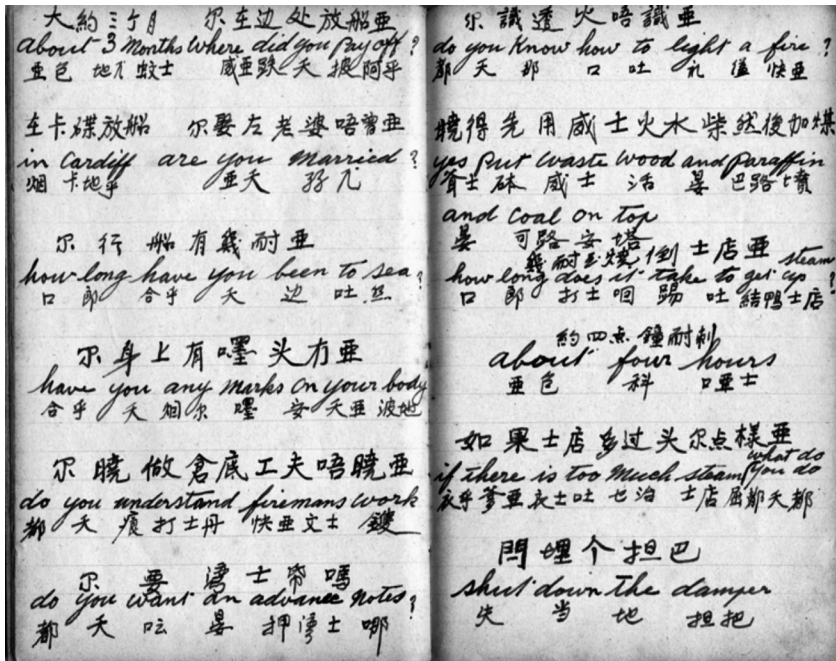 大約三个月 尔在边处放船亜
about 3 months Where did you Pay off?
亜包 地兀蚊士 威亜 天 披阿乎
在卡碟放船 尔娶左老婆唔曾亜
in Cardiff are you married?
烟 卡地乎 亜天 孖兀
尔行船有幾耐亜
how long have you been to sea?
口郎 合乎 天 边 吐 丝
尔身上有嚜头冇亜
have you any marks on your body
合乎 天 烟尔 嚜 安 天亜 波地
尔曉做倉底工夫唔曉亜
do you understand firemans work
都 天 痕打士丹 快亜文士
尔要湾士帋嗎
do you want an advance notes?
都 天 呍 晏 押湾士 哪
尔識透火唔識亜
do you Know how to light a fire?
都 天 那 口 吐 礼 快亜
曉得先用威士火水柴然後加煤
yes put waste wood and paraffin
砵 威士 活 晏 巴路
and coal on top
晏 可路安塔
幾耐至燒倒士店亜
how long does it take to get up steam?
口 郎 打士 踢 吐 結鴨士店
約四点鐘耐刺
about four hours
亜包 科 士
如果士店多过头尔点樣亜
if there is too much steam what do you do
衣乎 亜衣士吐 乜治 士店屈都天都
閂埋个担巴
shut down the damper
失 当 地 担把